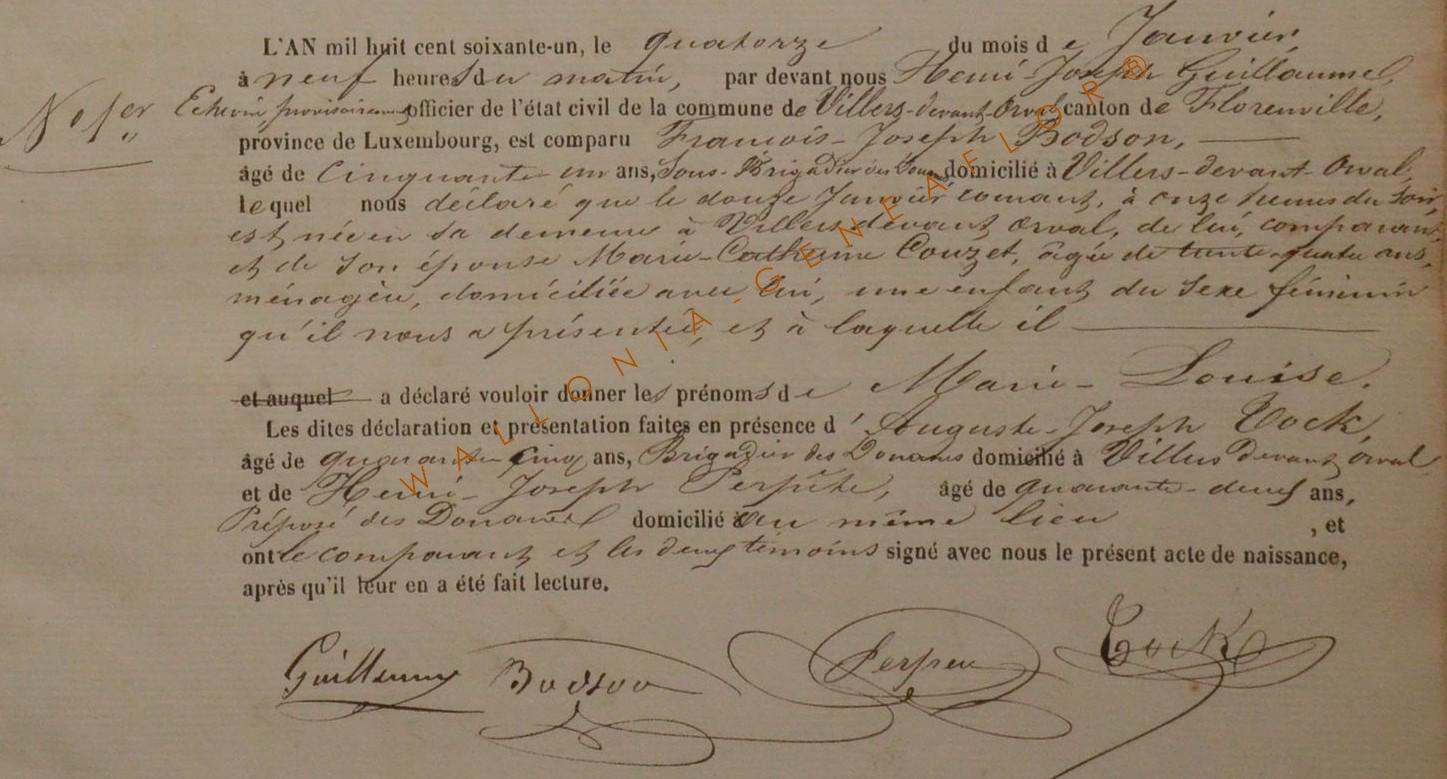 L'AN mil huit cent soixante-un, le quatorze du mois de Janvier,
à neuf heures du matin, par devant nous Henri-Joseph Guillaume,
No 1er Echevin provisoirement officier de l'état civil de la commune de Villers-devant-Orval canton de Florenville,
province de Luxembourg, est comparu François-Joseph Bodson,
âgé de Cinquante-un ans, Sous-Brigadier des Douanes domicilié à Villers-devant-Orval
lequel nous déclaré que le douze Janvier courant, à onze heures du Soir,
est née en sa demeure à Villers devant Orval, de lui, comparant
et de Son épouse Marie-Catherine Couzet, âgée de trente-quatre ans,
ménagère, domiciliée avec lui, une enfant du Sexe féminin
qu'il nous a présentée, et à laquelle il
et auquel a déclaré vouloir donner les prénoms de Marie-Louise.
Les dites déclaration et présentation faites en présence d'Auguste-Joseph Cock,
âgé de quarante cinq ans, Brigadier des Douanes domicilié à Villers devant orval
et de Henri-Joseph Perpète, âgé de quarante-deux ans,
Préposé des Douanes domicilié au même lieu , et
ont le comparant et les deux témoins signé avec nous le présent acte de naissance,
après qu'il leur en a été fait lecture.
Guillaume Bodson Cock
WALLONIA-GENEAFLOR®